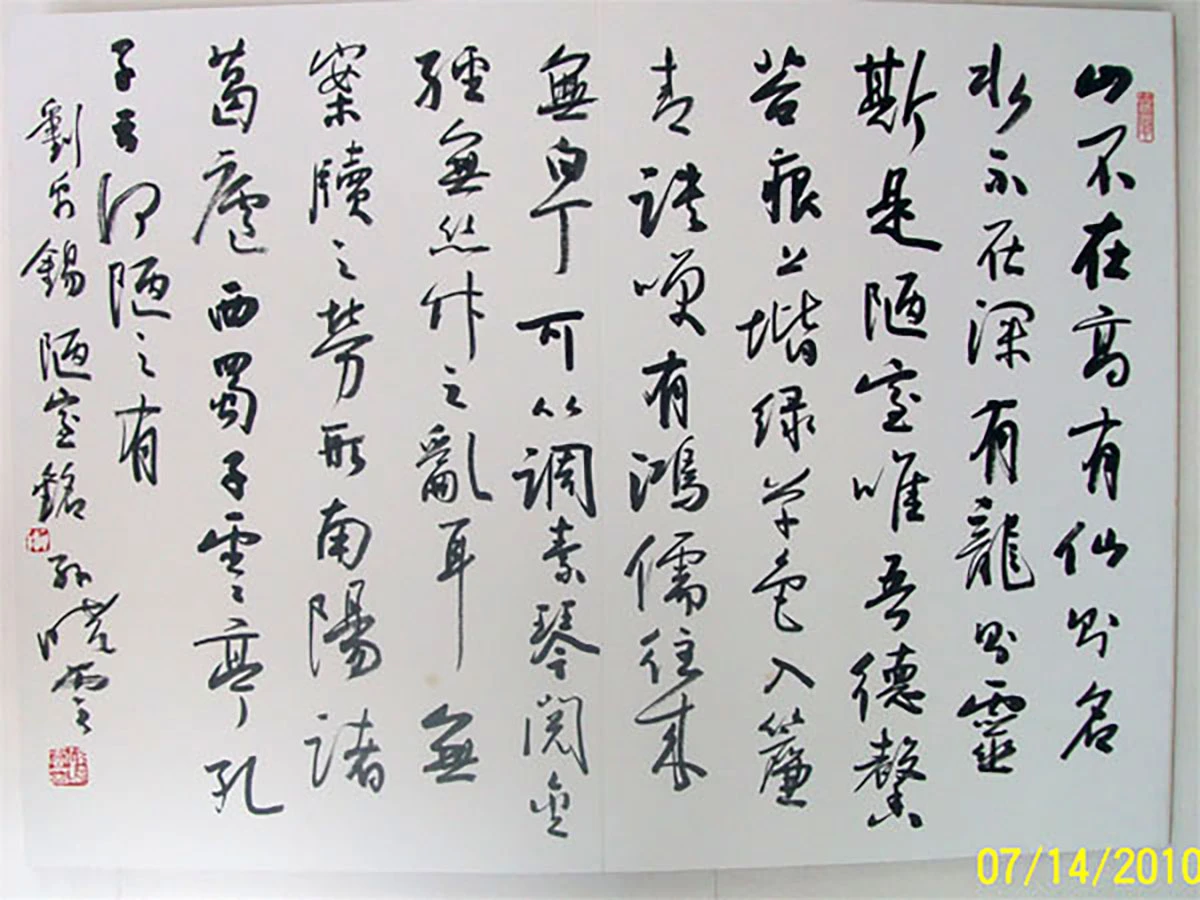 山不在高有仙則名
水不在深有龍則靈
斯是陋室唯吾德馨
苔痕上堦綠草色入簾
青談笑有鴻儒往來
無白丁可以調素琴閱金
經無絲竹之亂耳無
案牘之勞形南陽諸
葛廬西蜀子雲亭孔
子云何陋之有
劉禹錫陋室銘 孫曉雲
07/14/2010